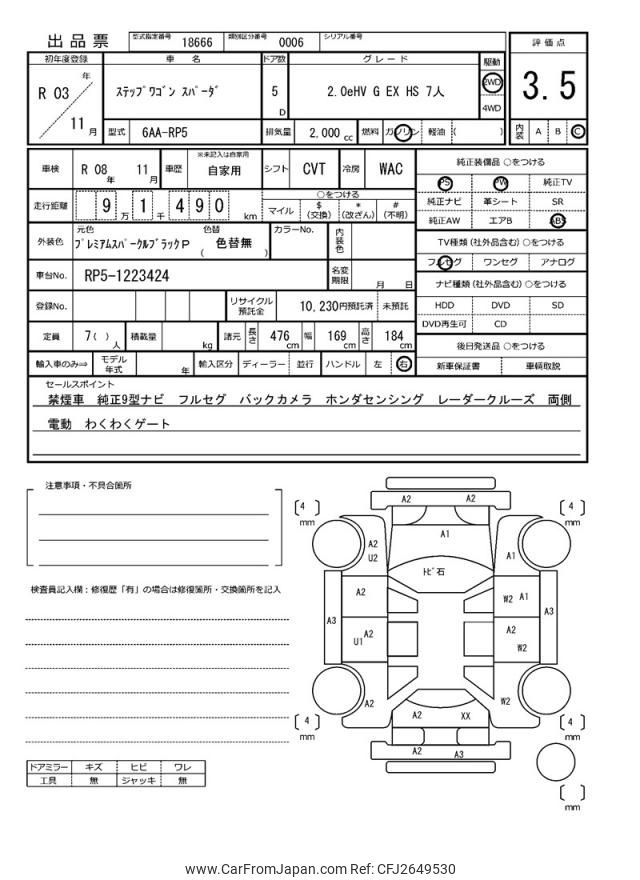 出品票 型式指定番号 18666 類別区分番号 0006 シリアル番号
初年度登録 車 名 ドア数 グレード 駆動 評価点
R 03 年 11 月 ステップワゴン スパーダ 5 D 2.0eHV G EX HS 7人 2WD 4WD 3.5
型式 6AA-RP5 排気量 2,000 cc 燃料 ガソリン 軽油 ( ) 内装 A B C
車検 R 08 年 11 月 車歴 ※未記入は自家用 自家用 シフト CVT 冷房 WAC 純正装備品 ○をつける
PS PW 純正TV
走行距離 9 万 1 千 490 km ○をつける マイル $ (交換) * (改ざん) # (不明) 純正ナビ 革シート SR
純正AW エアB ABS
外装色 元色 プレミアムスパークルブラックP 色替 ( 色替無 ) カラーNo. 内装色 TV種類 (社外品含む) ○をつける
フルセグ ワンセグ アナログ
車台No. RP5-1223424 名変期限 月 日 ナビ種類 (社外品含む) ○をつける
登録No. リサイクル預託金 10,230円預託済 未預託 HDD DVD SD
DVD再生可 CD
定員 7( ) 人 積載量 kg 諸元 長さ 476 cm 幅 169 cm 高さ 184 cm 後日発送品 ○をつける
輸入車のみ⇒ モデル年式 年 輸入区分 ディーラー 並行 ハンドル 左 右 新車保証書 車輌取説
セールスポイント
禁煙車 純正9型ナビ フルセグ バックカメラ ホンダセンシング レーダークルーズ 両側
電動 わくわくゲート
注意事項・不具合箇所
検査員記入欄：修復歴「有」の場合は修復箇所・交換箇所を記入
A2 A2
[ 4 ] mm [ 4 ] mm
A1
A2 U2 A1
トビ石
A2 W2 A1
A3 A3
U1 A2 A2 W2
A2 W2
A2 XX
[ 4 ] mm [ 4 ] mm
A2 A3
[ ] mm
ドアミラー キズ ヒビ ワレ
工具 無 ジャッキ 無
www.CarFromJapan.com Ref: CFJ2649530